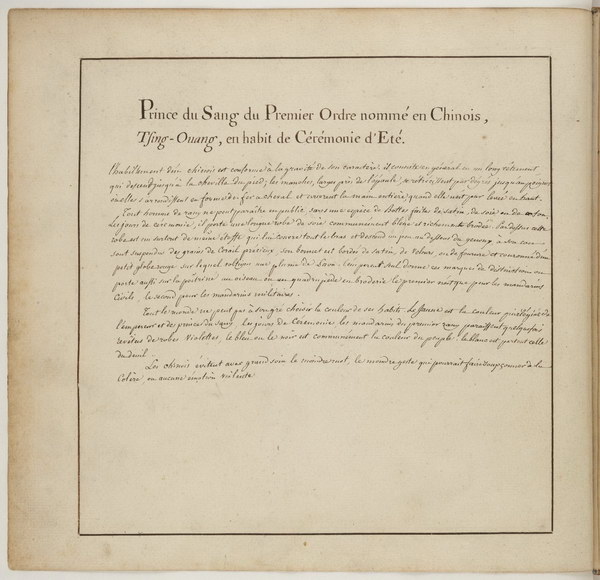 Prince du Sang du Premier Ordre nommé en Chinois,
Tsing-Ouang, en habit de Cérémonie d'Eté.
l'habillement d'un chinois est conforme à la gravité de son caractère. il consiste en général en un long vêtement
qui descend jusqu'à la cheville du pied; les manches, larges près de l'épaule, se retrécissent par degrés jusqu'au poignet
où elles s'arrondissent en forme de fer à cheval et couvrent la main entière quand elle n'est pas levée en haut.
Tout homme de rang ne peut paraître en public sans une espèce de Bottes faites de satin, de soie ou de coton.
Les jours de cérémonie, il porte une longue robe de soie communément bleue et richement brodée. Par dessus cette
robe est un surtout de même étoffe qui lui couvre tout le bras et descend un peu au dessous du genou. à son cou
sont suspendus des grains de Corail précieux. son bonnet est bordé de satin, de velours, ou de fourrure et couronné d'un
petit globe rouge sur lequel voltige une plume de Paon. L'empereur seul donne ces marques de distinction. on
porte aussi sur la poitrine un oiseau ou un quadrupède en broderie le premier n'est que pour les mandarins
Civils, le second pour les mandarins militaires.
Tout le monde ne peut pas à son gré choisir la couleur de ses habits. Le Jaune est la couleur privilégiée de
l'empereur et des princes du sang. Les jours de Cérémonie les mandarins du premier rang paraissent quelquefois
revêtus de robes violettes, le bleu ou le noir est communément la couleur du peuple. le blanc est partout celle
du deuil.
Les chinois évitent avec grand soin le moindre mot, le moindre geste qui pourrait faire soupçonner de la
Colère ou aucune émotion violente